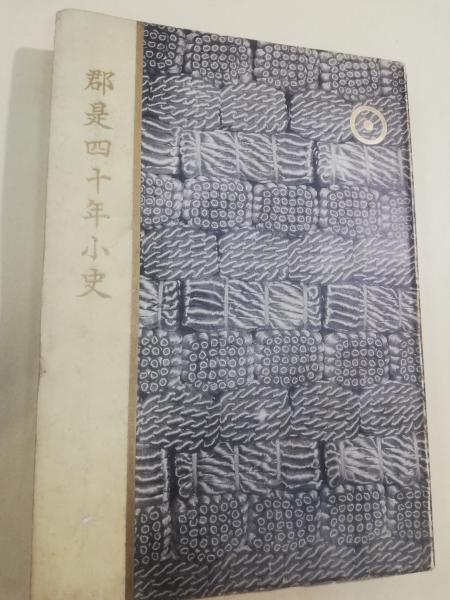 郡是四十年小史